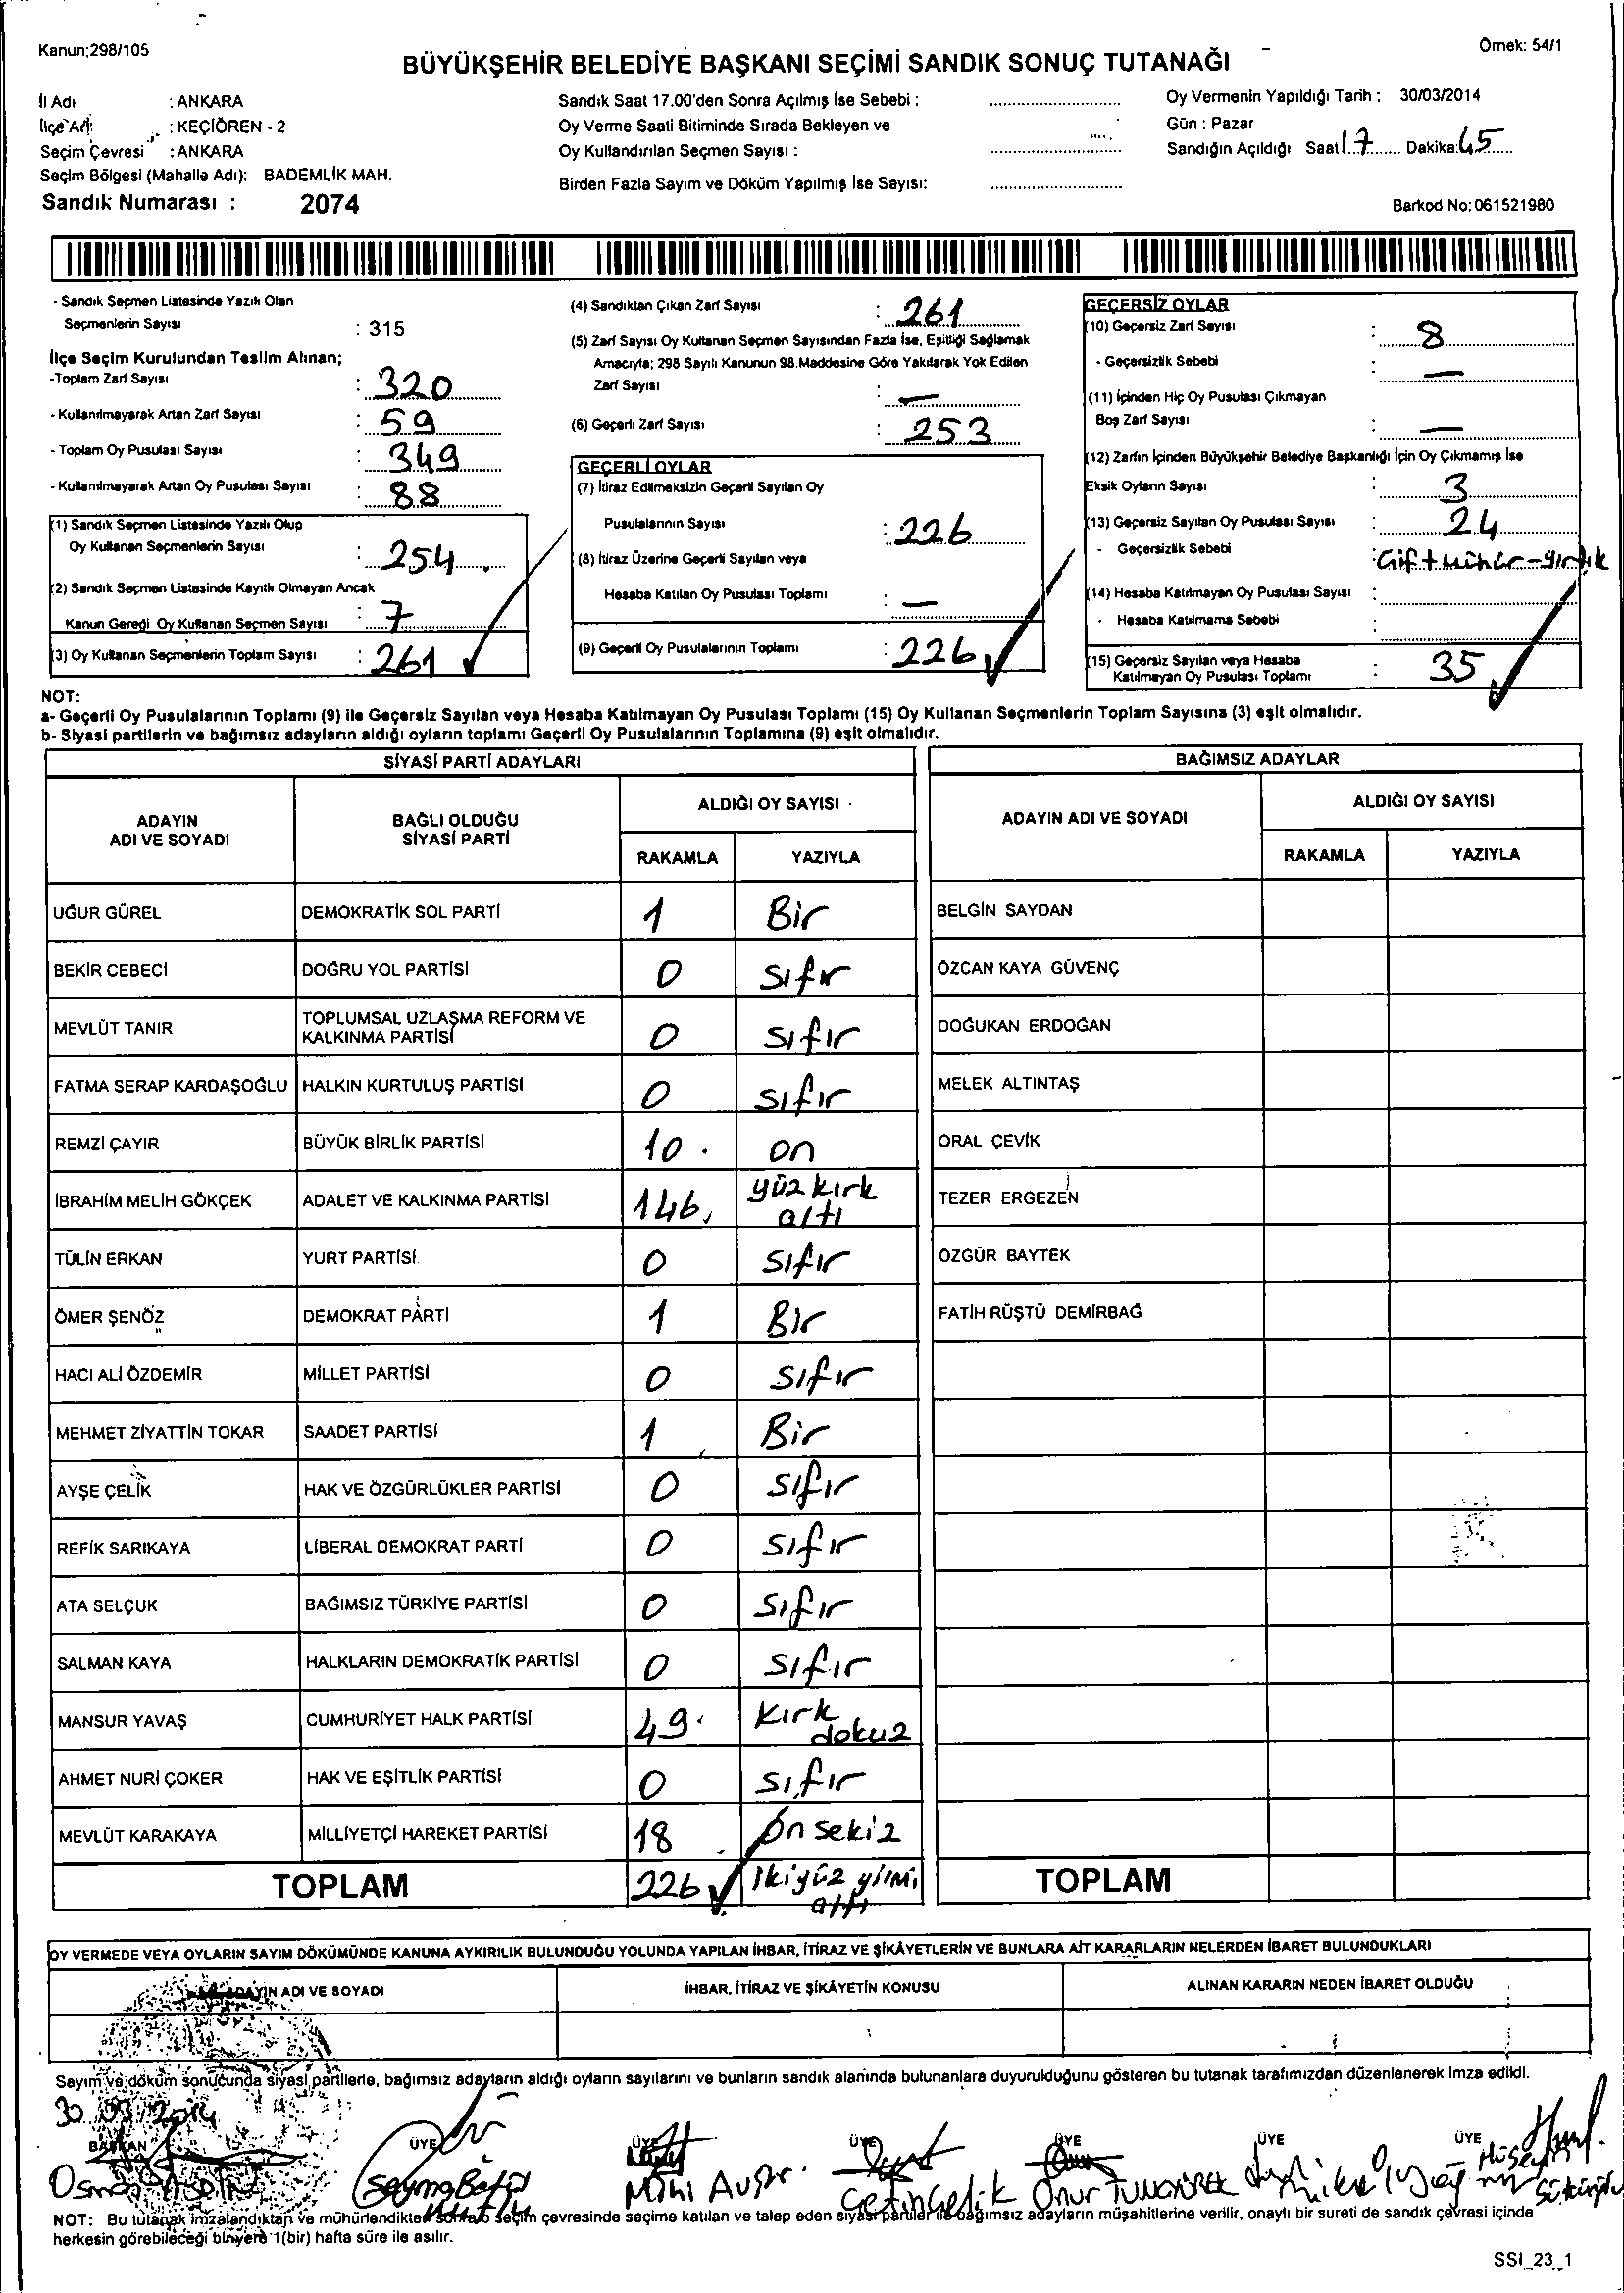 Kanun;298/105
Örnek: 54/1
BÜYÜKŞEHİR BELEDİYE BAŞKANI SEÇİMİ SANDIK SONUÇ TUTANAĞI
İl Adı : ANKARA
İlçe Adı : KEÇİÖREN - 2
Seçim Çevresi : ANKARA
Seçim Bölgesi (Mahalle Adı): BADEMLİK MAH.
Sandık Numarası : 2074
Sandık Saat 17.00'den Sonra Açılmış İse Sebebi :
Oy Verme Saati Bitiminde Sırada Bekleyen ve
Oy Kullandırılan Seçmen Sayısı :
Birden Fazla Sayım ve Döküm Yapılmış İse Sayısı:
Oy Vermenin Yapıldığı Tarih : 30/03/2014
Gün : Pazar
Sandığın Açıldığı Saat 17 Dakika: 45
Barkod No: 061521980
- Sandık Seçmen Listesinde Yazılı Olan
Seçmenlerin Sayısı : 315
İlçe Seçim Kurulundan Teslim Alınan;
-Toplam Zarf Sayısı : 320
- Kullanılmayarak Artan Zarf Sayısı : 59
- Toplam Oy Pusulası Sayısı : 349
- Kullanılmayarak Artan Oy Pusulası Sayısı : 88
(1) Sandık Seçmen Listesinde Yazılı Olup
Oy Kullanan Seçmenlerin Sayısı : 254
(2) Sandık Seçmen Listesinde Kayıtlı Olmayan Ancak
Kanun Gereği Oy Kullanan Seçmen Sayısı : 7
(3) Oy Kullanan Seçmenlerin Toplam Sayısı : 261
(4) Sandıktan Çıkan Zarf Sayısı : 261
(5) Zarf Sayısı Oy Kullanan Seçmen Sayısından Fazla İse, Eşitliği Sağlamak
Amacıyla; 298 Sayılı Kanunun 98.Maddesine Göre Yakılarak Yok Edilen
Zarf Sayısı : —
(6) Geçerli Zarf Sayısı : 253
GEÇERLİ OYLAR
(7) İtiraz Edilmeksizin Geçerli Sayılan Oy
Pusulalarının Sayısı : 226
(8) İtiraz Üzerine Geçerli Sayılan veya
Hesaba Katılan Oy Pusulası Toplamı : —
(9) Geçerli Oy Pusulalarının Toplamı : 226
GEÇERSİZ OYLAR
(10) Geçersiz Zarf Sayısı : 8
- Geçersizlik Sebebi : —
(11) İçinden Hiç Oy Pusulası Çıkmayan
Boş Zarf Sayısı : —
(12) Zarfın İçinden Büyükşehir Belediye Başkanlığı İçin Oy Çıkmamış İse
Eksik Oyların Sayısı : 3
(13) Geçersiz Sayılan Oy Pusulası Sayısı : 24
- Geçersizlik Sebebi : Çift mühür - yırtık
(14) Hesaba Katılmayan Oy Pusulası Sayısı :
- Hesaba Katılmama Sebebi :
(15) Geçersiz Sayılan veya Hesaba
Katılmayan Oy Pusulası Toplamı : 35
NOT:
a- Geçerli Oy Pusulalarının Toplamı (9) ile Geçersiz Sayılan veya Hesaba Katılmayan Oy Pusulası Toplamı (15) Oy Kullanan Seçmenlerin Toplam Sayısına (3) eşit olmalıdır.
b- Siyasi partilerin ve bağımsız adayların aldığı oyların toplamı Geçerli Oy Pusulalarının Toplamına (9) eşit olmalıdır.
SİYASİ PARTİ ADAYLARI
ADAYIN ADI VE SOYADI
BAĞLI OLDUĞU SİYASİ PARTİ
ALDIĞI OY SAYISI
RAKAMLA YAZIYLA
UĞUR GÜREL DEMOKRATİK SOL PARTİ 1 Bir
BEKİR CEBECİ DOĞRU YOL PARTİSİ 0 sıfır
MEVLÜT TANIR TOPLUMSAL UZLAŞMA REFORM VE KALKINMA PARTİSİ 0 sıfır
FATMA SERAP KARDAŞOĞLU HALKIN KURTULUŞ PARTİSİ 0 sıfır
REMZİ ÇAYIR BÜYÜK BİRLİK PARTİSİ 10 on
İBRAHİM MELİH GÖKÇEK ADALET VE KALKINMA PARTİSİ 146 yüz kırk altı
TÜLİN ERKAN YURT PARTİSİ 0 sıfır
ÖMER ŞENÖZ DEMOKRAT PARTİ 1 Bir
HACI ALİ ÖZDEMİR MİLLET PARTİSİ 0 sıfır
MEHMET ZİYATTİN TOKAR SAADET PARTİSİ 1 Bir
AYŞE ÇELİK HAK VE ÖZGÜRLÜKLER PARTİSİ 0 sıfır
REFİK SARIKAYA LİBERAL DEMOKRAT PARTİ 0 sıfır
ATA SELÇUK BAĞIMSIZ TÜRKİYE PARTİSİ 0 sıfır
SALMAN KAYA HALKLARIN DEMOKRATİK PARTİSİ 0 sıfır
MANSUR YAVAŞ CUMHURİYET HALK PARTİSİ 49 kırk dokuz
AHMET NURİ ÇOKER HAK VE EŞİTLİK PARTİSİ 0 sıfır
MEVLÜT KARAKAYA MİLLİYETÇİ HAREKET PARTİSİ 18 on sekiz
TOPLAM 226 ikiyüz yirmi altı
BAĞIMSIZ ADAYLAR
ADAYIN ADI VE SOYADI
ALDIĞI OY SAYISI
RAKAMLA YAZIYLA
BELGİN SAYDAN
ÖZCAN KAYA GÜVENÇ
DOĞUKAN ERDOĞAN
MELEK ALTINTAŞ
ORAL ÇEVİK
TEZER ERGEZEN
ÖZGÜR BAYTEK
FATİH RÜŞTÜ DEMİRBAĞ
TOPLAM
OY VERMEDE VEYA OYLARIN SAYIM DÖKÜMÜNDE KANUNA AYKIRILIK BULUNDUĞU YOLUNDA YAPILAN İHBAR, İTİRAZ VE ŞİKÂYETLERİN VE BUNLARA AİT KARARLARIN NELERDEN İBARET BULUNDUKLARI
ADI VE SOYADI
İHBAR, İTİRAZ VE ŞİKÂYETİN KONUSU
ALINAN KARARIN NEDEN İBARET OLDUĞU
Sayım ve döküm sonucunda siyasi partilerle, bağımsız adayların aldığı oyların sayılarını ve bunların sandık alanında bulunanlara duyurulduğunu gösteren bu tutanak tarafımızdan düzenlenerek imza edildi.
30.03.2014
BAŞKAN ÜYE ÜYE ÜYE ÜYE ÜYE ÜYE
Osman
Çetin Çelik Onur
NOT: Bu tutanak imzalandıktan ve mühürlendikten sonra seçim çevresinde seçime katılan ve talep eden siyasi partiler ile bağımsız adayların müşahitlerine verilir, onaylı bir sureti de sandık çevresi içinde
herkesin görebileceği bir yere 1(bir) hafta süre ile asılır.
SSI_23_1